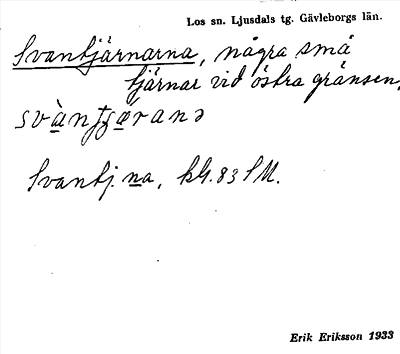 Los sn. Ljusdals tg. Gävleborgs län.
Svantjärnarna, några små
tjärnar vid östra gränsen.
Svantj. na,
Erik Eriksson 1933